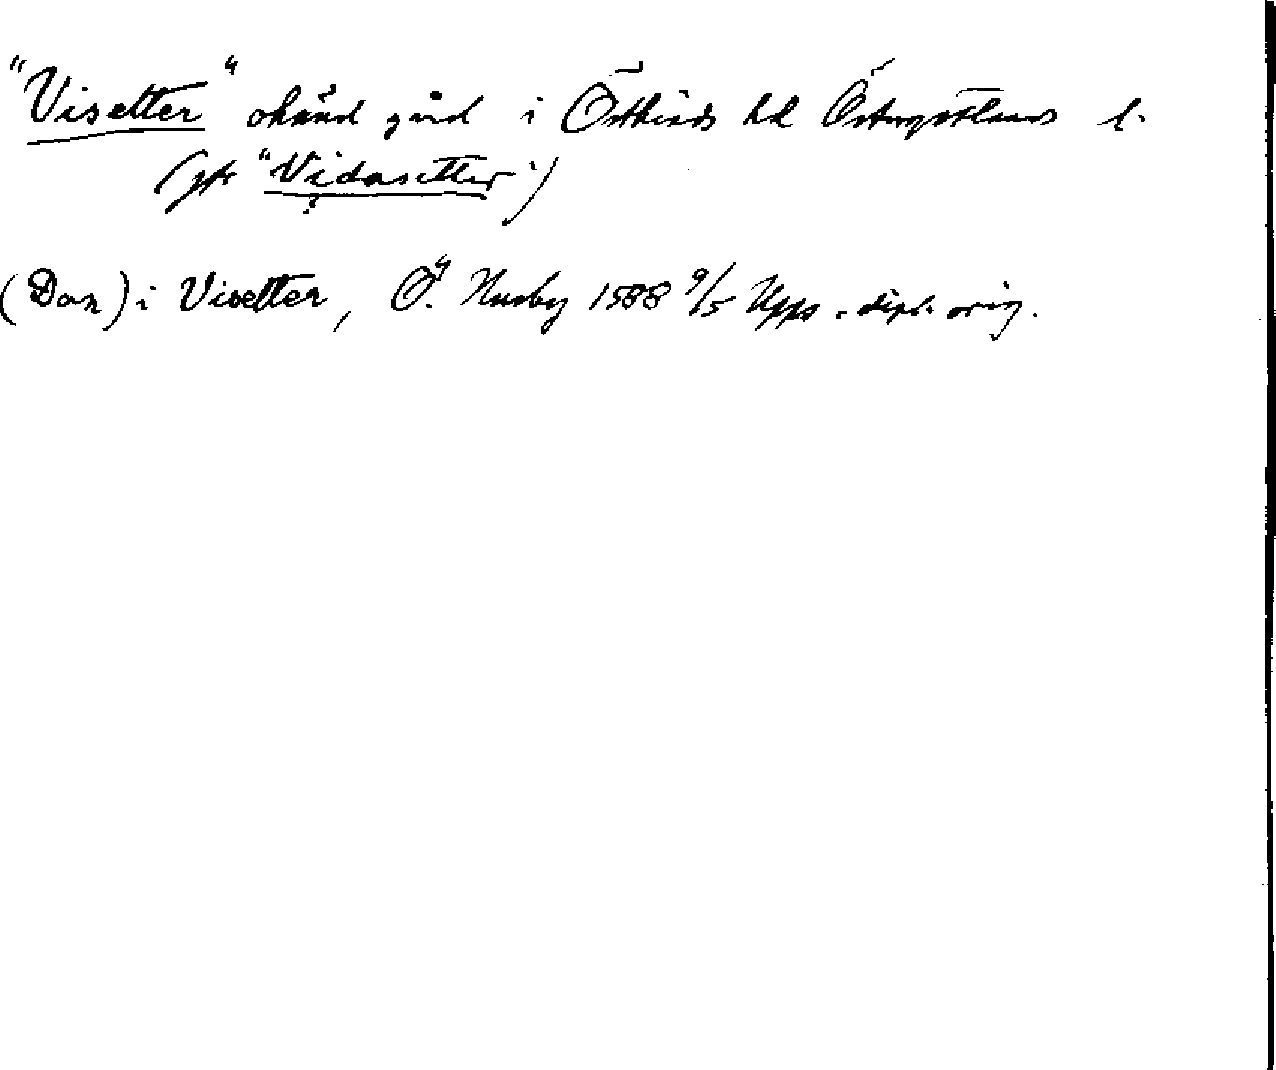 "Visetter" okänd gård i Östkinds hd Östergötlands l.
(jfr "Vidasetter")
(Dan) i Visetter, Ö. Husby 1588 9/5 Upps. dipl. orig.